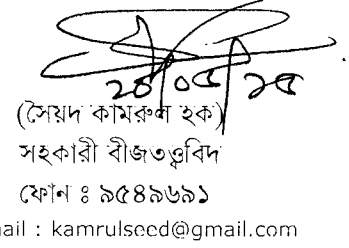 ২৪/০৫/১৫
(সৈয়দ কামরুল হক)
সহকারী বীজতত্ত্ববিদ
ফোন ঃ ৯৫৪৯৬৯১
ail : kamrulseed@gmail.com